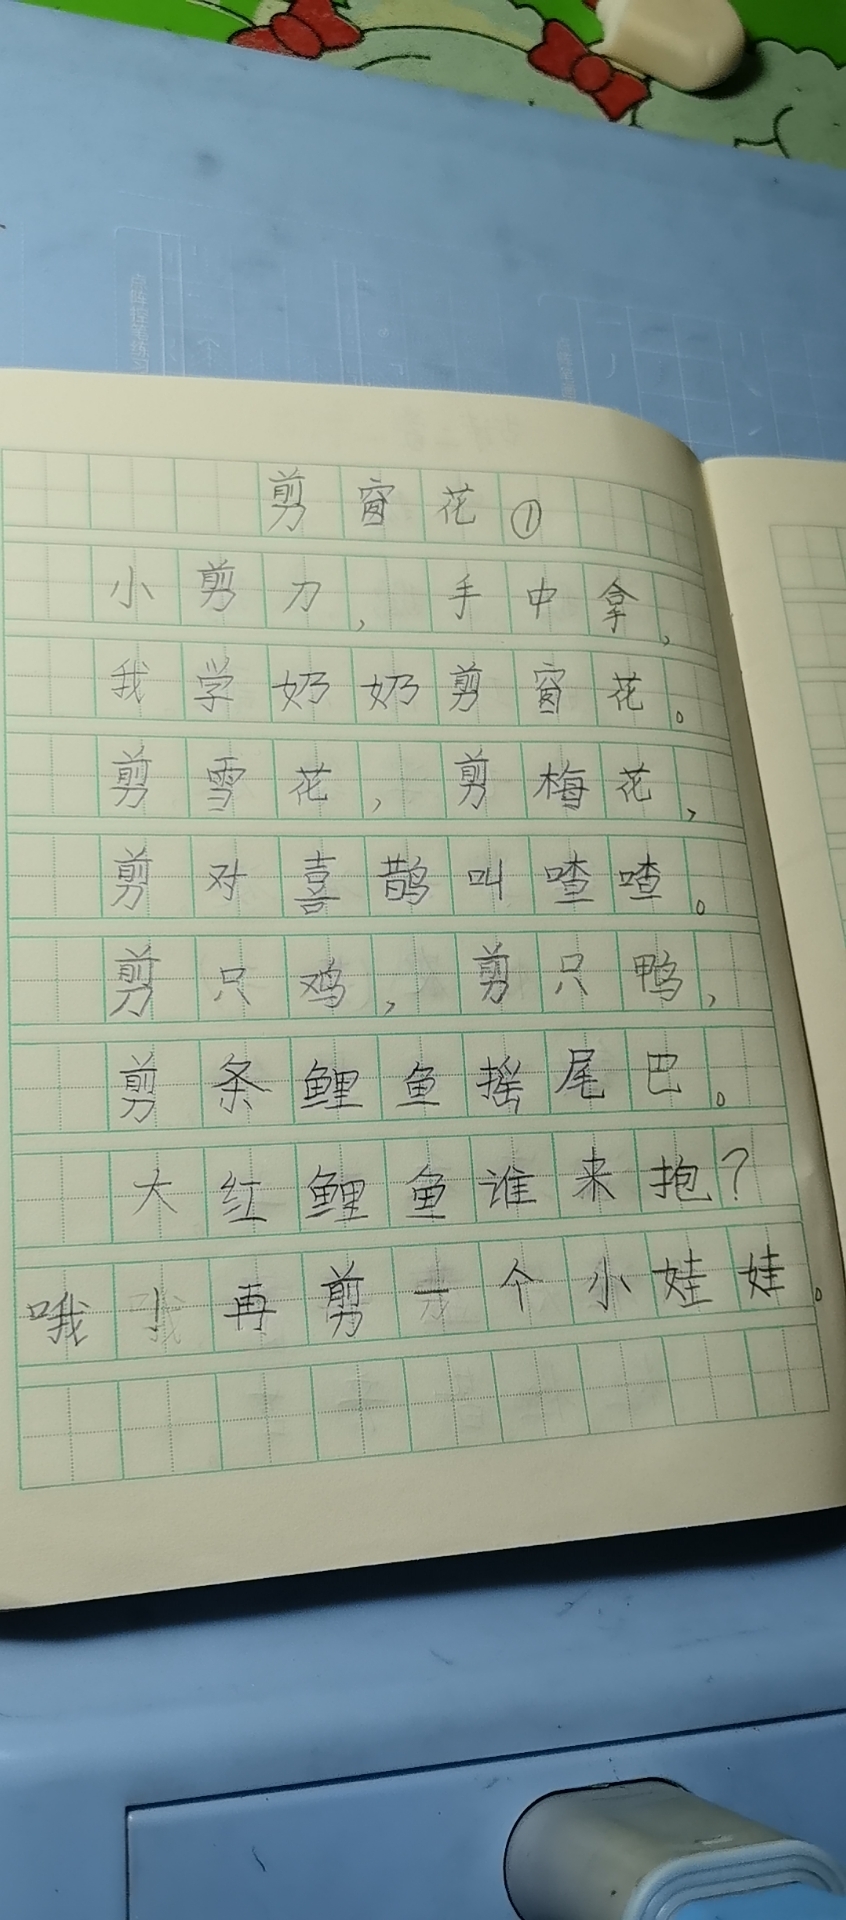 剪窗花①
小剪刀，手中拿，
我学奶奶剪窗花。
剪雪花，剪梅花，
剪对喜鹊叫喳喳。
剪只鸡，剪只鸭，
剪条鲤鱼摇尾巴。
大红鲤鱼谁来抱？
哦！再剪一个小娃娃。